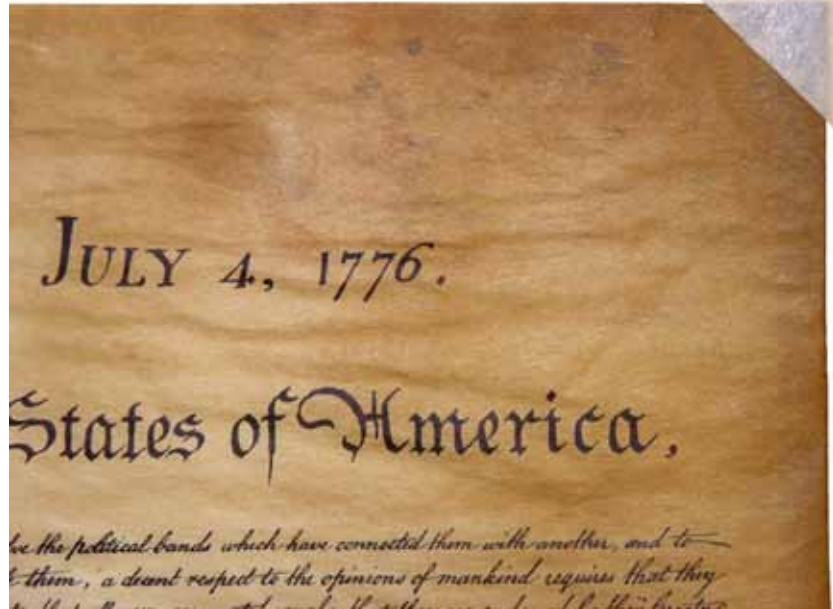 JULY 4, 1776.
States of America.
the political bands which have connected them with another, and to
them, a decent respect to the opinions of mankind requires that they